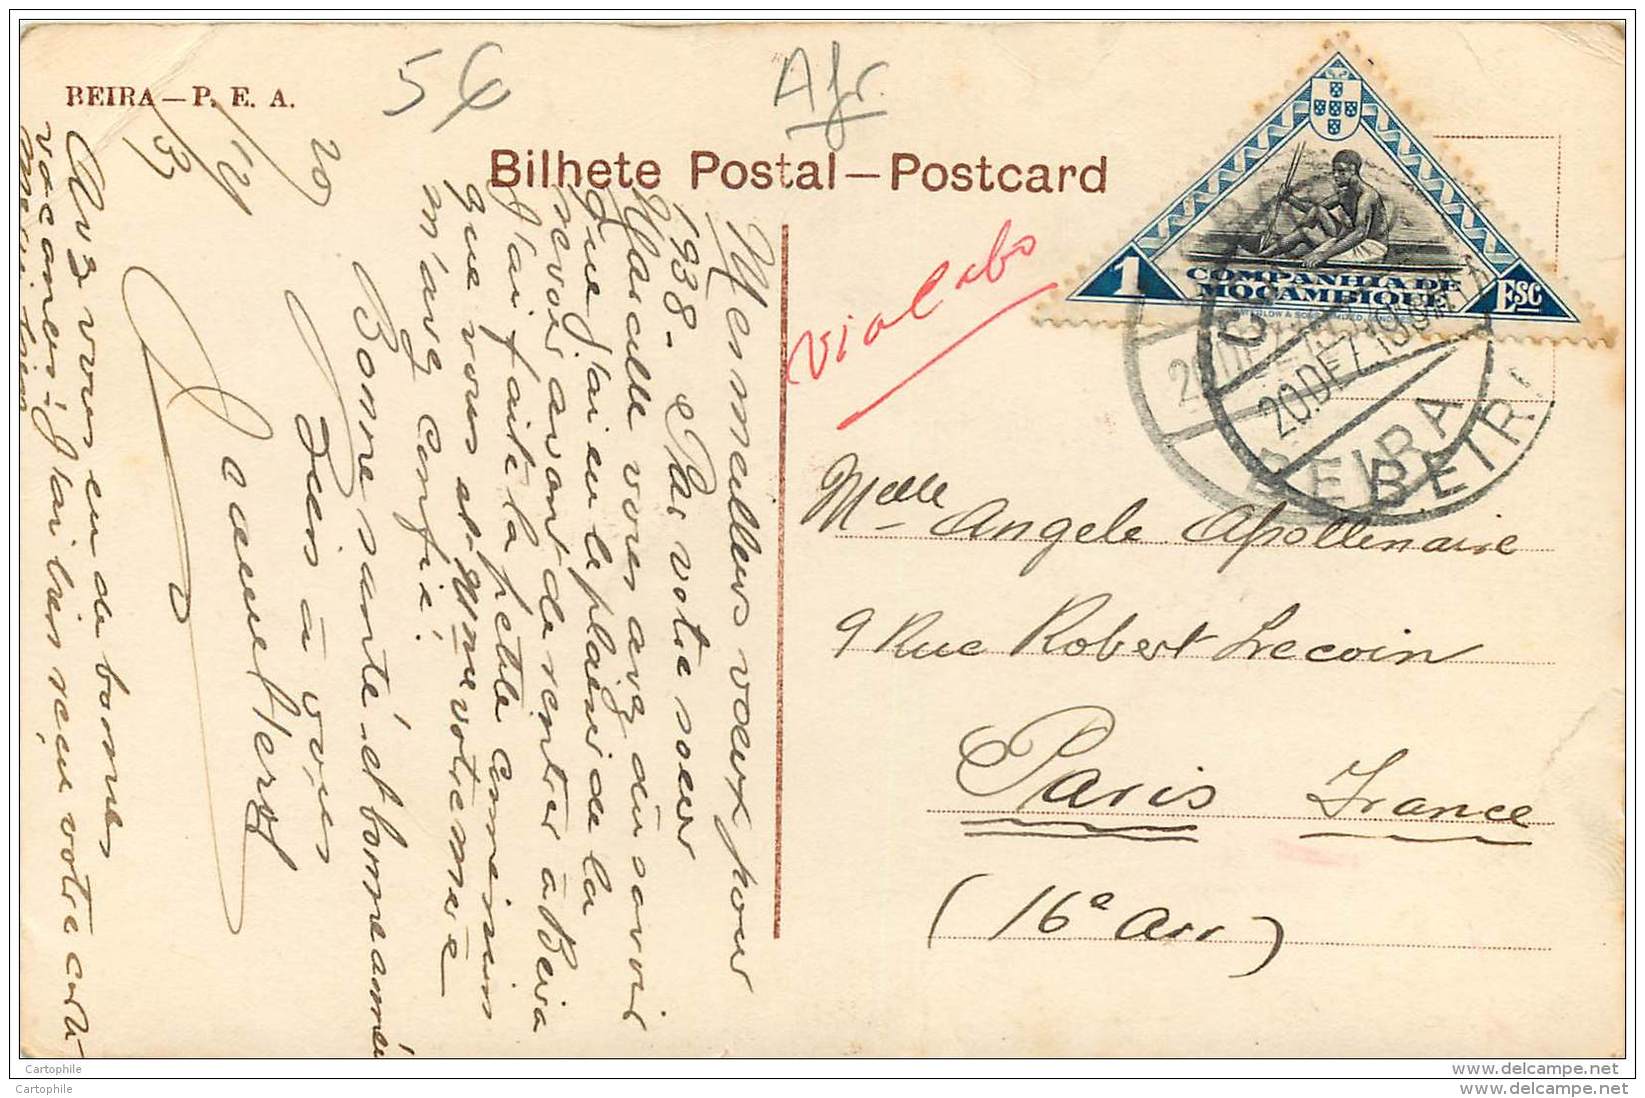 BEIRA — P. E. A.
56
Afr.
Bilhete Postal — Postcard
20/12/37
Mes meilleurs voeux pour
1938 - Par votre soeur
Marcelle vous avez dû savoir
que j'ai eu le plaisir de la
revoir avant de rentrer à Beira
J'ai fait la petite commission
que vous et Mme votre mère
m'avez confié.
Bonne santé et bonne année
Bien à vous
Avez vous eu de bonnes
vacances - J'ai bien reçu votre carte
Merci bien
Via Cabo
COMPANHIA DE
MOÇAMBIQUE
1
ESC
20.DEZ.19
BEIRA
20.DEZ.19
BEIRA
Melle Angele Apollenaire
9 Rue Robert Lecoin
Paris France
(16e arr)
Cartophile
www.delcampe.net
Cartophile
www.delcampe.net